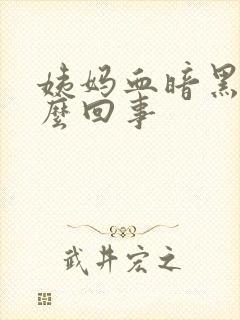 姨妈血暗黑
麼回事
武井宏之